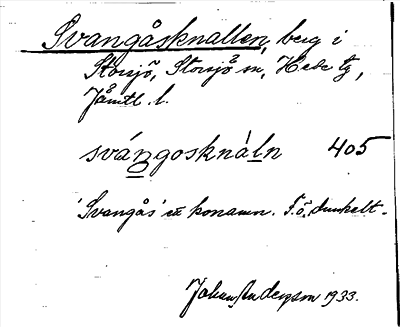 Svangåsknallen, berg i
Storsjö, Storsjö sn, Hede tg,
Jämtl. l.
svángosknàln 405
'Svangås' är konamn. F. ö. dunkelt.
Johan Anderzon 1933.